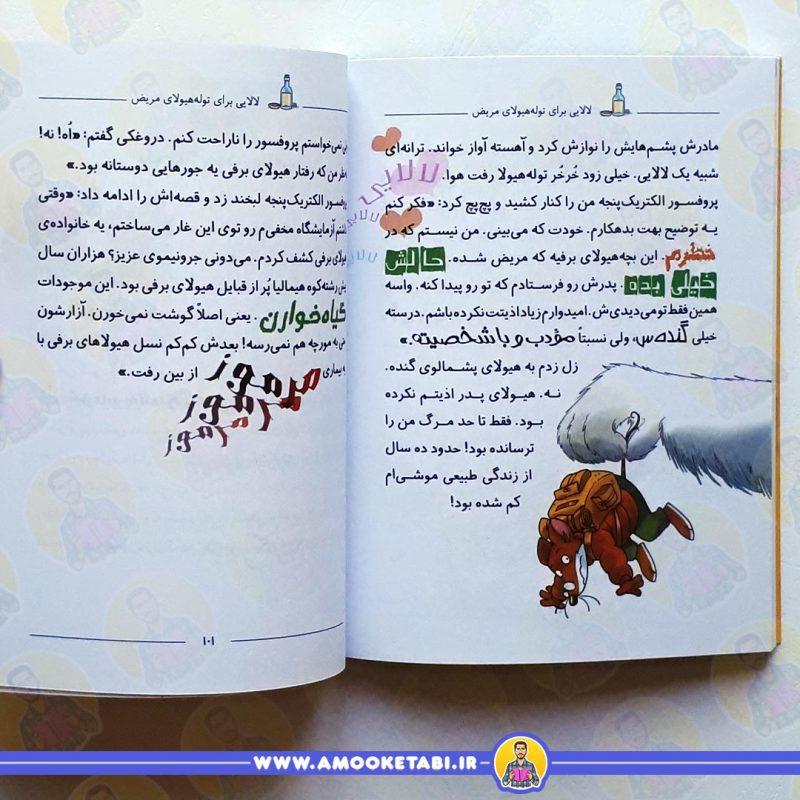 لالایی برای توله‌هیولای مریض
مادرش پشم‌هایش را نوازش کرد و آهسته آواز خواند. ترانه‌ای
شبیه یک لالایی. خیلی زود خُرخُر توله‌هیولا رفت هوا.
لالایی
لالایی
لالایی
پروفسور الکتریک‌پنجه من را کنار کشید و پچ‌پچ کرد: «فکر کنم
یه توضیح بهت بدهکارم. خودت که می‌بینی. من نیستم که در
خطرم. این بچه‌هیولای برفیه که مریض شده. حالش
خیلی بده. پدرش رو فرستادم که تو رو پیدا کنه. واسه
همین فقط تو می‌دیدی‌ش. امیدوارم زیاد اذیتت نکرده باشم. درسته
خیلی گنده‌س، ولی نسبتاً مؤدب و باشخصیته.»
زل زدم به هیولای پشمالوی گنده.
نه. هیولای پدر اذیتم نکرده
بود. فقط تا حد مرگ من را
ترسانده بود! حدود ده سال
از زندگی طبیعی موشی‌ام
کم شده بود!
لالایی برای توله‌هیولای مریض
نمی‌خواستم پروفسور را ناراحت کنم. دروغکی گفتم: «اُه! نه!
من که رفتار هیولای برفی یه جورهایی دوستانه بود.»
الکتریک‌پنجه لبخند زد و قصه‌اش را ادامه داد: «وقتی
آزمایشگاه مخفی‌م رو توی این غار می‌ساختم، یه خانواده‌ی
هیولای برفی کشف کردم. می‌دونی جرونیموی عزیز؟ هزاران سال
رشته‌کوه هیمالیا پُر از قبایل هیولای برفی بود. این موجودات
گیاه‌خوارن. یعنی اصلاً گوشت نمی‌خورن. آزارشون
به مورچه هم نمی‌رسه! بعدش کم‌کم نسل هیولاهای برفی با
بیماری مرموز از بین رفت.»
مرموز
مرموز
۱۰۱
WWW.AMOOKETABI.IR